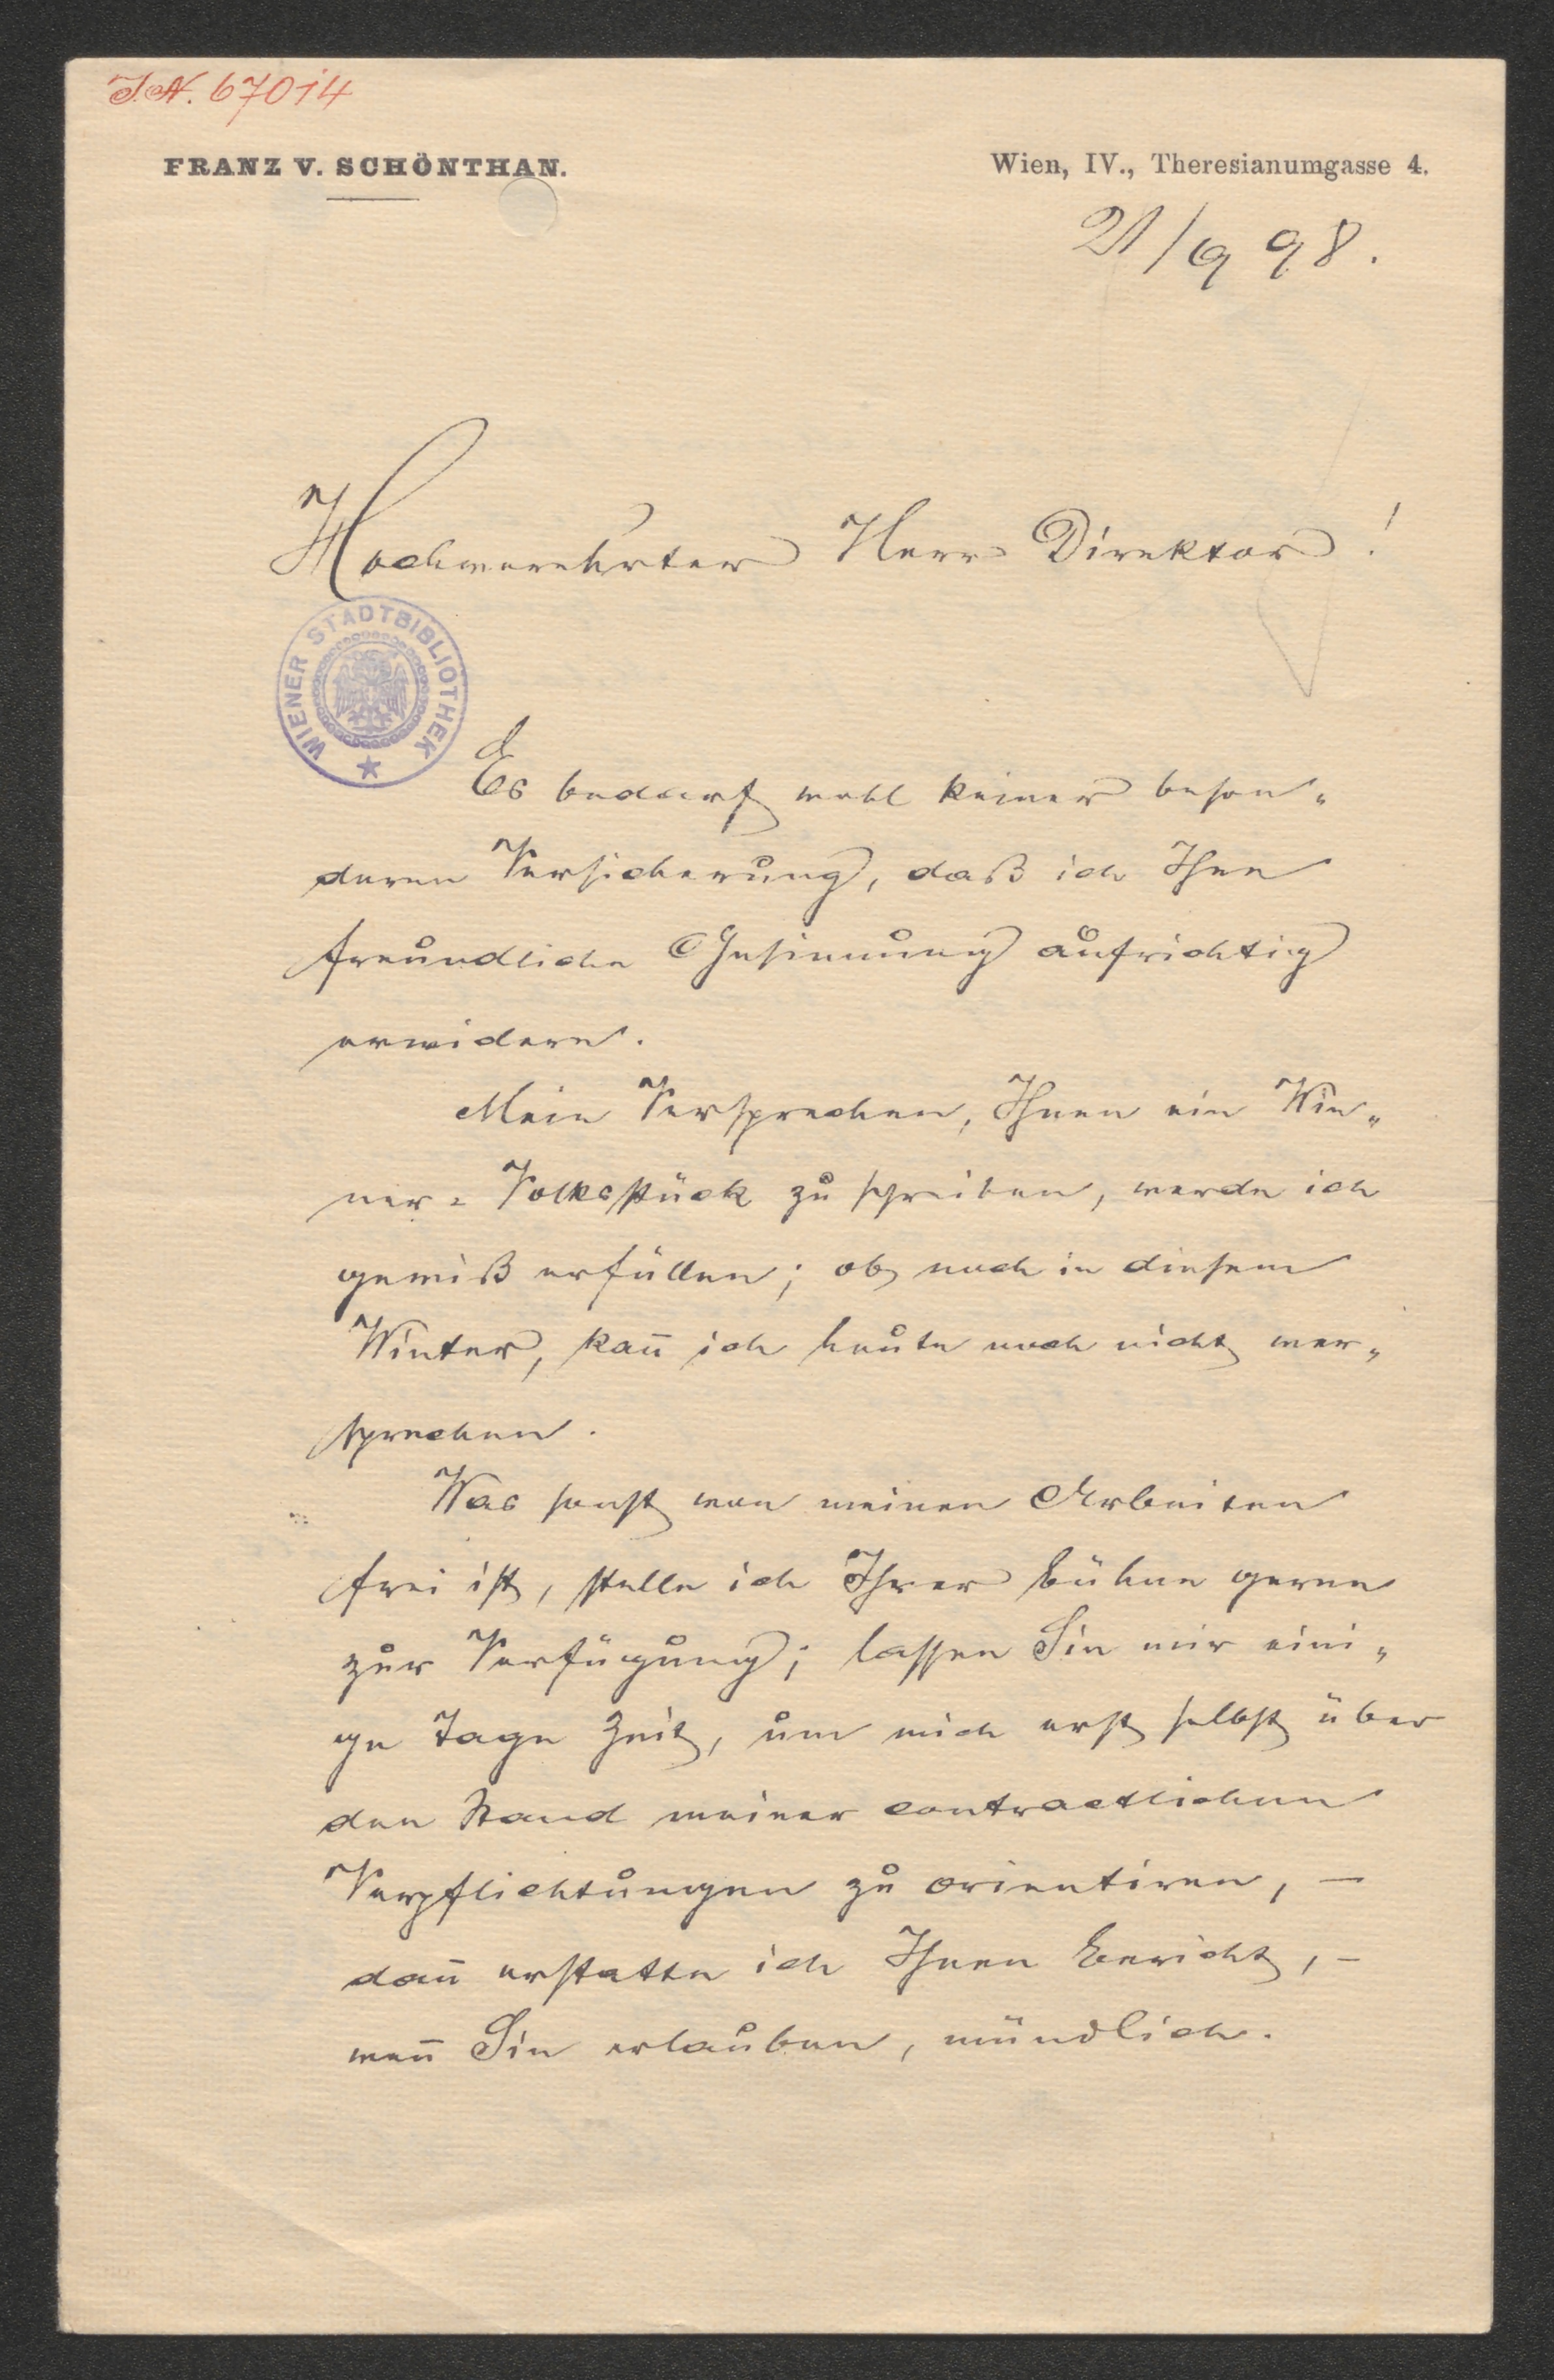 J.N. 67014
FRANZ V. SCHÖNTHAN.
Wien, IV., Theresianumgasse 4.
21/9 98.
Hochverehrter Herr Direktor!
WIENER STADTBIBLIOTHEK
Es bedarf wohl keiner beson„
deren Versicherung, daß ich Ihre
freundliche Gesinnung aufrichtig
erwidere.
Mein Versprechen, Ihnen ein Wie„
ner-Volksstück zu schreiben, werde ich
gewiß erfüllen; ob noch in diesem
Winter, kañ ich heute noch nicht ver„
sprechen.
Was sonst von meinen Arbeiten
frei ist, stelle ich Ihrer Bühne gerne
zur Verfügung; lassen Sie mir eini„
ge Tage Zeit, um mich erst selbst über
den Stand meiner contractlichen
Verpflichtungen zu orientiren, —
dañ erstatte ich Ihnen Bericht, —
weñ Sie erlauben, mündlich.